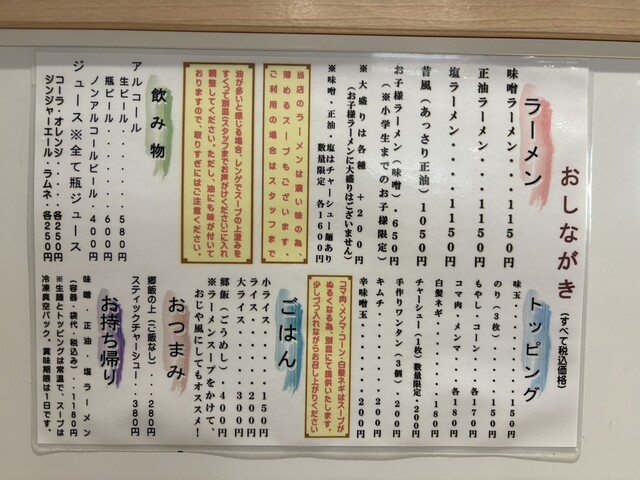 おしながき(すべて税込価格)
ラーメン
味噌ラーメン・・1150円
正油ラーメン・・1150円
塩ラーメン・・・1150円
昔風(あっさり正油)1050円
お子様ラーメン(味噌)・650円
(※小学生までのお子様限定)
※大盛りは各種 +200円
(お子様ラーメンに大盛りはございません)
※味噌・正油・塩はチャーシュー麺あり
数量限定 各1600円
当店のラーメンは濃い味の為、
薄めるスープもございます。
ご利用の場合はスタッフまで
油が多いと感じる場合、レンゲでスープの上澄みを
すくって別皿(スタッフまでお声がけください)に入れ
調整してください。ただし、油にも味が付いて
おりますので、取りすぎにはご注意ください。
飲み物
アルコール
生ビール・・・・・・580円
瓶ビール・・・・・・600円
ノンアルコールビール・400円
ジュース※全て瓶ジュース
コーラ・オレンジ・・・・各250円
ジンジャーエール・ラムネ・各250円
トッピング
味玉・・・・・・・150円
のり(3枚)・・・・150円
もやし・コーン・・各170円
コマ肉・メンマ・・各180円
白髪ネギ・・・・・・180円
チャーシュー(1枚)数量限定・200円
手作りワンタン(3個)・200円
キムチ・・・・・・・200円
辛味噌玉・・・・・・200円
コマ肉・メンマ・コーン・白髪ネギはスープが
ぬるくなる為、別皿にて提供いたします。
少しづつ入れながらお召し上がりください
ごはん
小ライス・・・・・150円
ライス・・・・・・200円
大ライス・・・・・300円
郷飯(ごうめし)・400円
※ラーメンスープをかけて、
おじや風にしてもオススメ!
おつまみ
郷飯の上(ご飯なし)・・280円
スティックチャーシュー・380円
お持ち帰り
味噌・正油・塩ラーメン
(容器・袋代・税込み)・・1180円
※生麺とトッピングは常温で、スープは
冷凍真空パック。賞味期限は1日です。